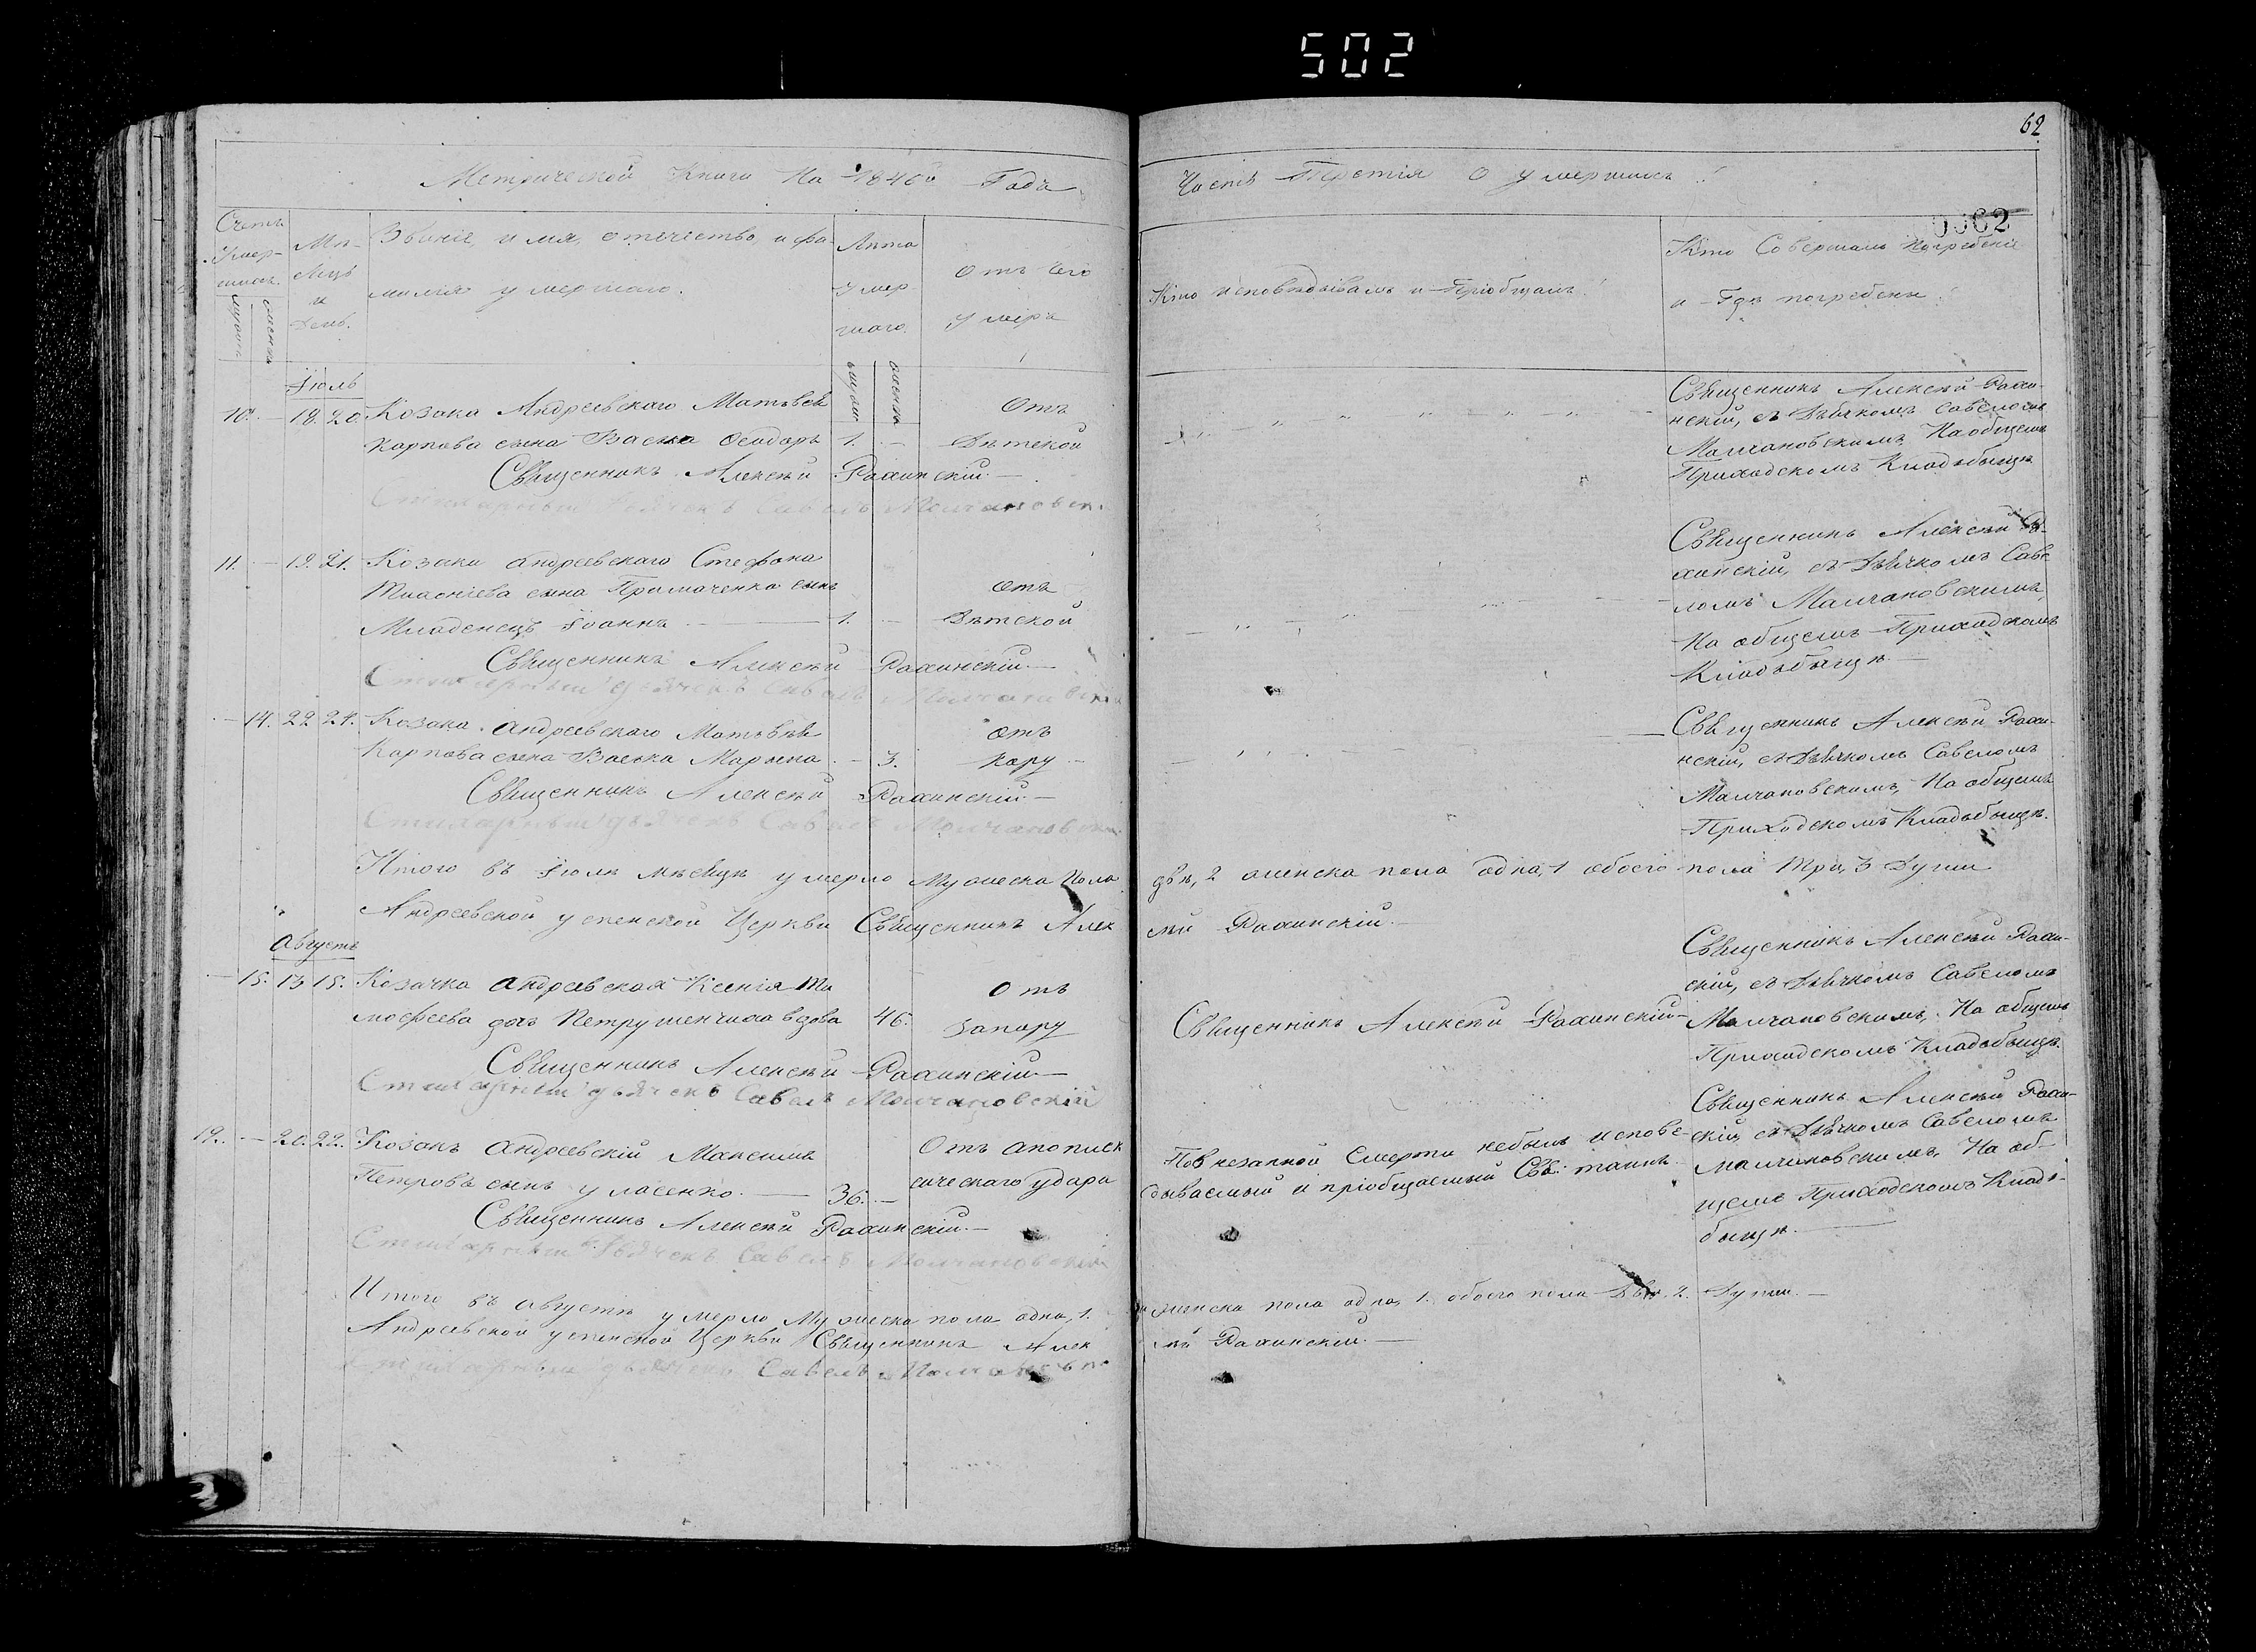 502
62
Метрической Книги На 1846й Года
Часть Третія О умершихъ
5562
Счетъ Умер-шихъ.
мужеск женск
Мѣ-сяцъ и день.
Званіе, имя, отечество, и фа-
милія умершаго.
Лѣта умер-шаго.
мужеск женск
Отъ чего умеръ
Кто исповѣдывалъ и Пріобщалъ
Кто Совершалъ Погребеніе
и Гдѣ погребены
Іюль
10. — 18. 20. Козака Андреевскаго Матѣвея
Карпова сына Васька Ѳеодоръ 1. —
Отъ
Дѣтской
Священникъ Алексѣй Рахинскій. —
Стихарный Дьячекъ Савелъ Молчановск.
Священникъ Алексѣй Рахи-
нскій, съ Дьячкомъ Савеломъ
Малчановскимъ, На общемъ
Приходскомъ Кладьбищѣ
11. — 19. 21. Козака Андреевскаго Стефана
сына Примаченка сынъ
Младенецъ Іоаннъ — 1. —
Отъ
Дѣтской
Священникъ Алексѣй Рахинскій. —
Стихарный дьячекъ Савелъ Молчановск
Священникъ Алексѣй Ра-
хинскій, съ Дьячкомъ Саве-
ломъ Малчановскимъ,
На общемъ Приходскомъ
Кладьбищѣ. —
— 14. 22. 24. Козака Андреевскаго Матѣвѣя
Карпова сына Васька Марына — 3.
отъ
Кору —
Священникъ Алексѣй Рахинскій. —
Стихарный дьячекъ Савелъ Молчановск
Священникъ Алексѣй Рахи-
нскій, съ Дьячкомъ Савеломъ
Малчановскимъ, На общемъ
Приходскомъ Кладьбищѣ.
Итого въ Іюлѣ мѣсяцѣ умерло Мужеска Пола двѣ, 2 женска пола одна, 1 обоего пола Три, 3 Души
Андреевской успенской Церкви Священникъ Алексѣй Рахинскій. —
Августъ
— 15. 13. 15. Козачка Андреевская Ксенія Ти
мофеева дочь Петрушенчиха вдова 46.
Отъ
Запору
Священникъ Алексѣй Рахинскій —
Священникъ Алексѣй Рахинскій. —
Стихарный дьячекъ Савелъ Молчановскій
Священникъ Алексѣй Рахи-
скій, съ Дьячкомъ Савеломъ
Малчановскимъ, На общемъ
Приходскомъ Кладьбищѣ.
12. — 20. 22. Козакъ Андреевскій Максимъ
Петровъ сынъ Уласенко. — 36. —
Отъ апоплек
сическаго удара
По внезапной Смерти небылъ испове-
дываемый и пріобщаемый Свѣ. таинъ.
Священникъ Алексѣй Рахинскій. —
Стихарный Дьячекъ Савелъ Молчановскій
Священникъ Алексѣй Рахи-
скій, съ Дьячкомъ Савеломъ
Малчановскимъ, На об-
щемъ Приходскомъ Кладь-
бищѣ. —
Итого въ Августѣ умерло Мужеска пола одна, 1. женска пола одна, 1. обоего пола Двѣ, 2. Души. —
Андреевской успенской Церкви Священникъ Алексѣй Рахинскій. —
Стихарный дьячекъ Савелъ